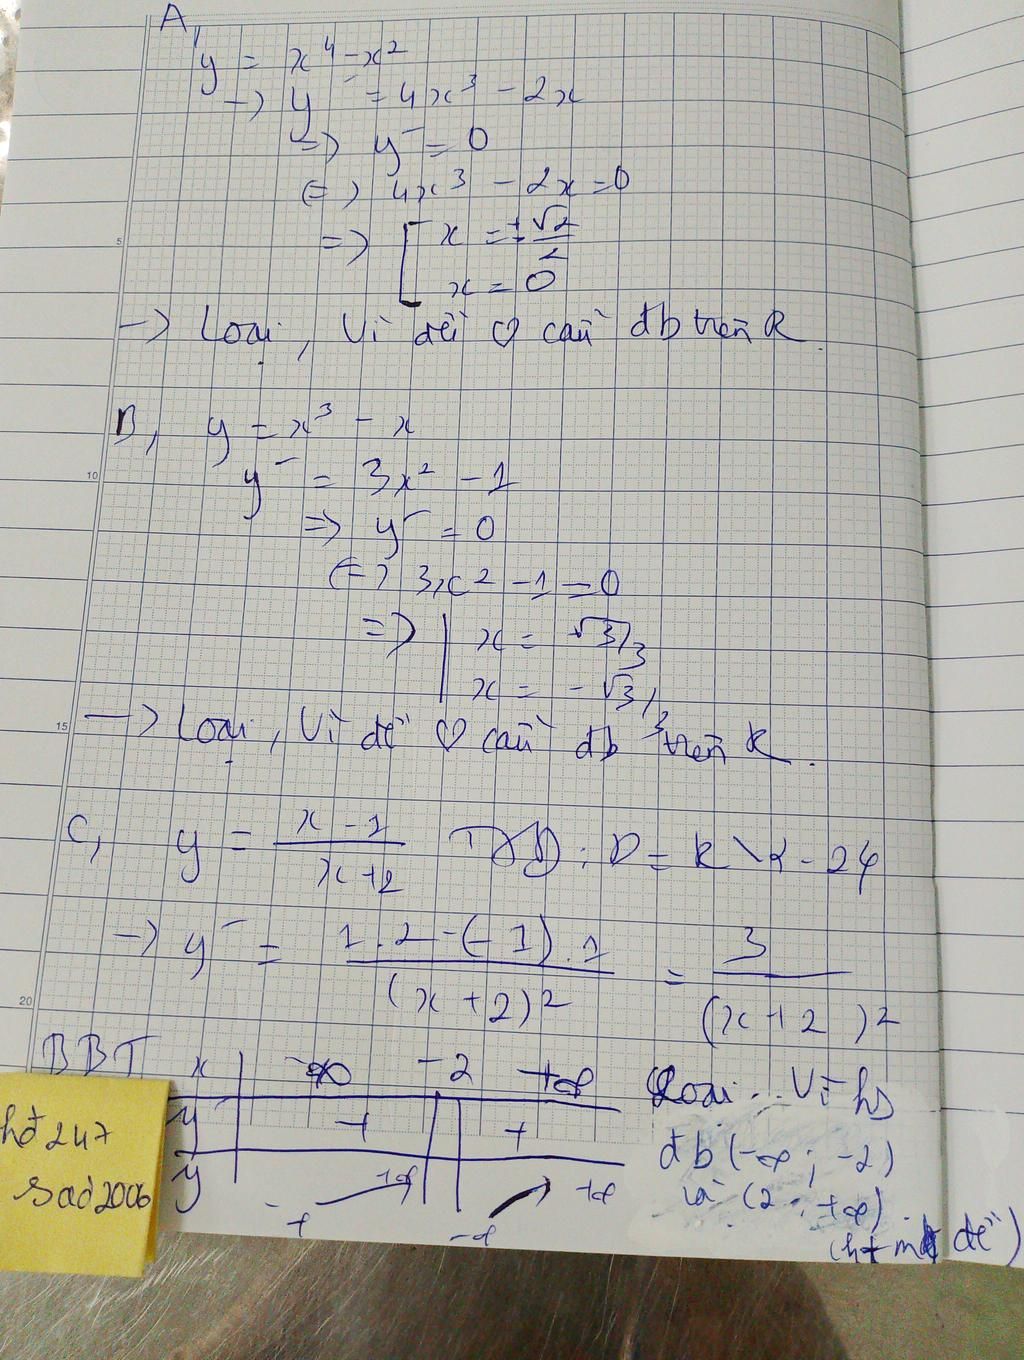 A,
y = x⁴ - x²
→ y' = 4x³ - 2x
⇒ y' = 0
(=) 4x³ - 2x = 0
⇒ [ x = ± √2/2
x = 0
→ Loại, Vì đề ♡ cầu đb trên R.
5
B, y = x³ - x
y' = 3x² - 1
10
⇒ y' = 0
(=) 3x² - 1 = 0
⇒ | x = √3/3
x = -√3/3
→ Loại, Vì đề ♡ cầu đb trên R.
15
C, y = x-1 / x+2 TXĐ: D = R \ {-2}
→ y' = 1.2-(-1).1 / (x+2)² = 3 / (x+2)²
20
BBT x | -∞ -2 +∞
y' + || +
y -∞ → +∞ || -∞ → +∞
Loại.. Vì hs
đb (-∞; -2)
và (2; +∞)
đề)
hđ 247
sad2006